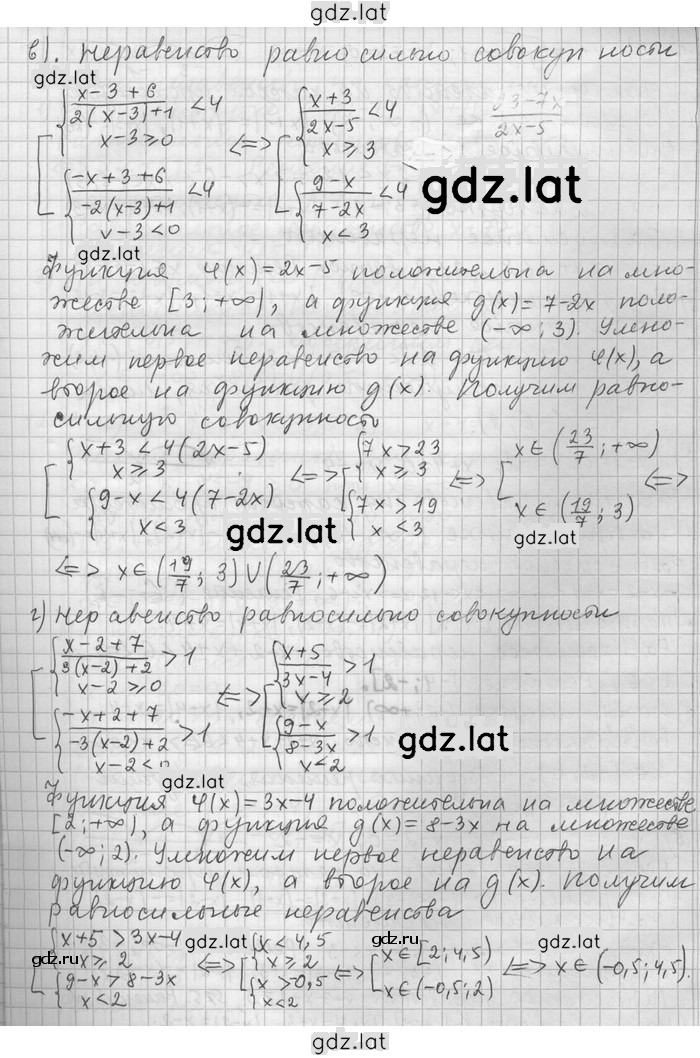 gdz.lat
в). неравенство равносильно совокупности
gdz.lat
[ { (x-3+6)/(2(x-3)+1) < 4 ; x-3 ≥ 0 ; { (-x+3+6)/(-2(x-3)+1) < 4 ; x-3 < 0 <=> [ { (x+3)/(2x-5) < 4 ; x ≥ 3 ; { (9-x)/(7-2x) < 4 ; x < 3
(23-7x)/(2x-5)
gdz.lat
gdz.lat
Функция φ(x)=2x-5 положительна на мно-
жестве [3;+∞), а функция g(x)=7-2x поло-
жительна на множестве (-∞;3). Умно-
жим первое неравенство на функцию φ(x), а
второе на функцию g(x). Получим равно-
сильную совокупность
[ { x+3 < 4(2x-5) ; x ≥ 3 ; { 9-x < 4(7-2x) ; x < 3 <=> [ { 7x > 23 ; x ≥ 3 ; { 7x > 19 ; x < 3 <=> [ x ∈ (23/7; +∞) ; x ∈ (19/7; 3) <=>
gdz.lat
gdz.lat
<=> x ∈ (19/7; 3) ∪ (23/7; +∞)
г) неравенство равносильно совокупности
gdz.lat
[ { (x-2+7)/(3(x-2)+2) > 1 ; x-2 ≥ 0 ; { (-x+2+7)/(-3(x-2)+2) > 1 ; x-2 < 0 <=> [ { (x+5)/(3x-4) > 1 ; x ≥ 2 ; { (9-x)/(8-3x) > 1 ; x < 2
gdz.lat
gdz.lat
Функция φ(x)=3x-4 положительна на множестве
[2;+∞), а функция g(x)=8-3x на множестве
(-∞;2). Умножим первое неравенство на
функцию φ(x), а второе на g(x). Получим
равносильные неравенства
[ { x+5 > 3x-4 ; x ≥ 2 ; { 9-x > 8-3x ; x < 2 <=> [ { x < 4,5 ; x ≥ 2 ; { x > 0,5 ; x < 2 <=> [ x ∈ [2; 4,5) ; x ∈ (-0,5; 2) <=> x ∈ (-0,5; 4,5).
gdz.ru
gdz.lat
gdz.lat
gdz.lat
gdz.lat